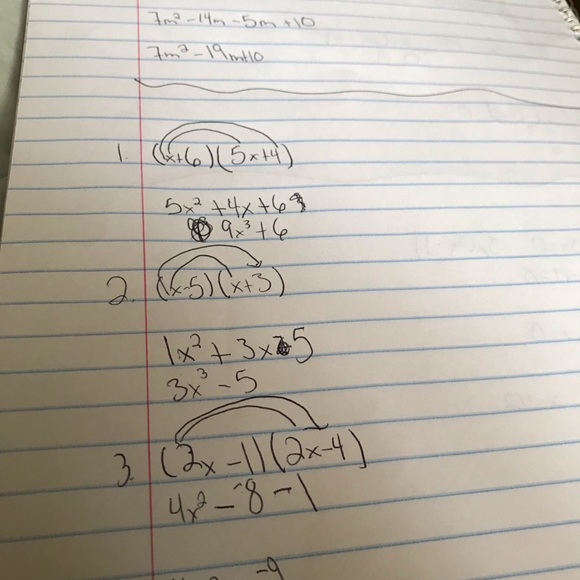 7m² -14m -5m +10
7m² -19m+10
1. (x+6)(5x+4)
5x² +4x +6
9x³ +6
2. (x-5)(x+3)
1x² + 3x - 5
3x³ - 5
3. (2x -1)(2x-4)
4x² - -8 - 1
-9